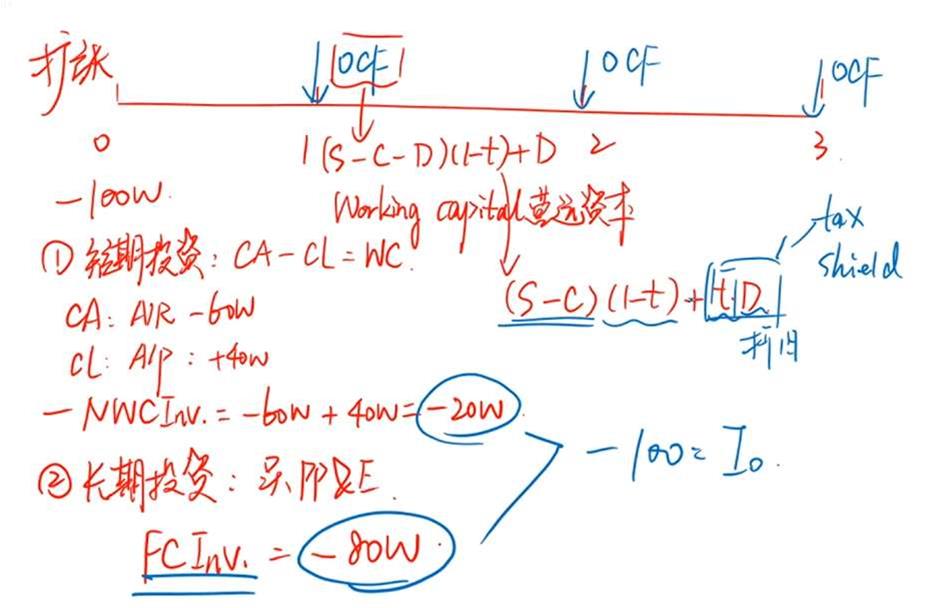 扩张
OCF
OCF
OCF
0
1 (S-C-D)(1-t)+D
2
3
-100W
Working capital 营运资本
① 短期投资: CA-CL=WC
CA: A/R -60W
CL: A/P: +40W
-NWCInv. = -60W + 40W = -20W
② 长期投资: 买PP&E
FCInv. = -80W
(S-C)(1-t)+t·D
tax
shield
折旧
-100 = I₀